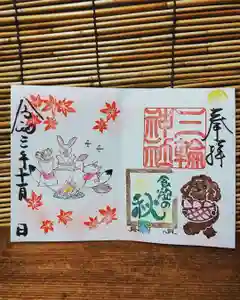 奉拝
三輪
神社
食欲の
秋
令和三年十一月 日